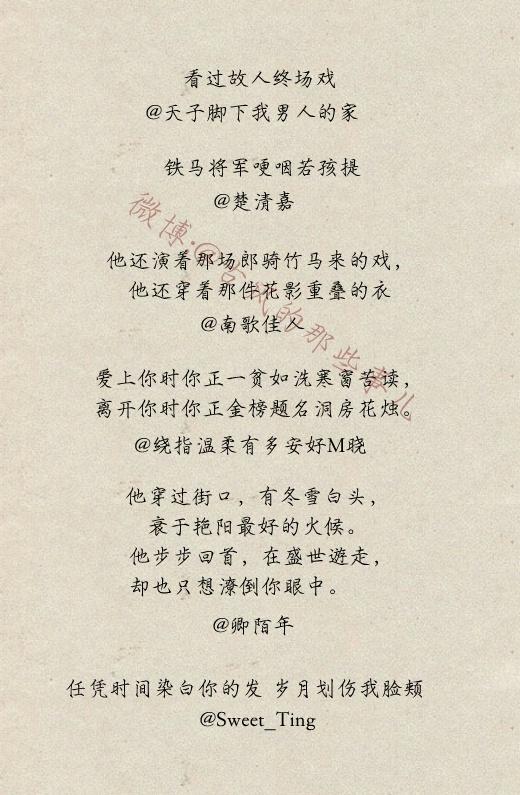 看过故人终场戏
@天子脚下我男人的家
铁马将军哽咽若孩提
@楚清嘉
他还演着那场郎骑竹马来的戏，
他还穿着那件花影重叠的衣
@南歌佳人
爱上你时你正一贫如洗寒窗苦读，
离开你时你正金榜题名洞房花烛。
@绕指温柔有多安好M晓
他穿过街口，有冬雪白头，
衰于艳阳最好的火候。
他步步回首，在盛世遊走，
却也只想潦倒你眼中。
@卿陌年
任凭时间染白你的发 岁月划伤我脸颊
@Sweet_Ting
微博:@古风的那些事儿